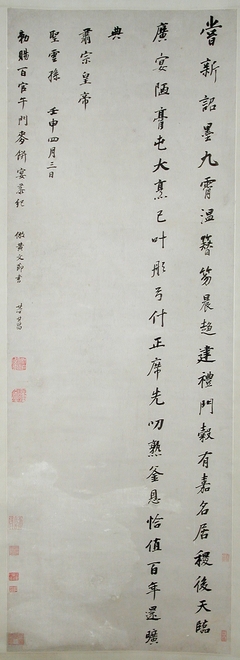 嘗新詔墨九霄温簪笏晨趨建禮門穀有嘉名居稷後天臨
廣宴陋膏屯大烹已叶彤弓什正席先叨熟釜恩恰值百年還曠
典
肅宗皇帝
聖靈孫 壬申四月三日
勑賜百官午門麥餅宴恭紀 倣黃文節書 其昌